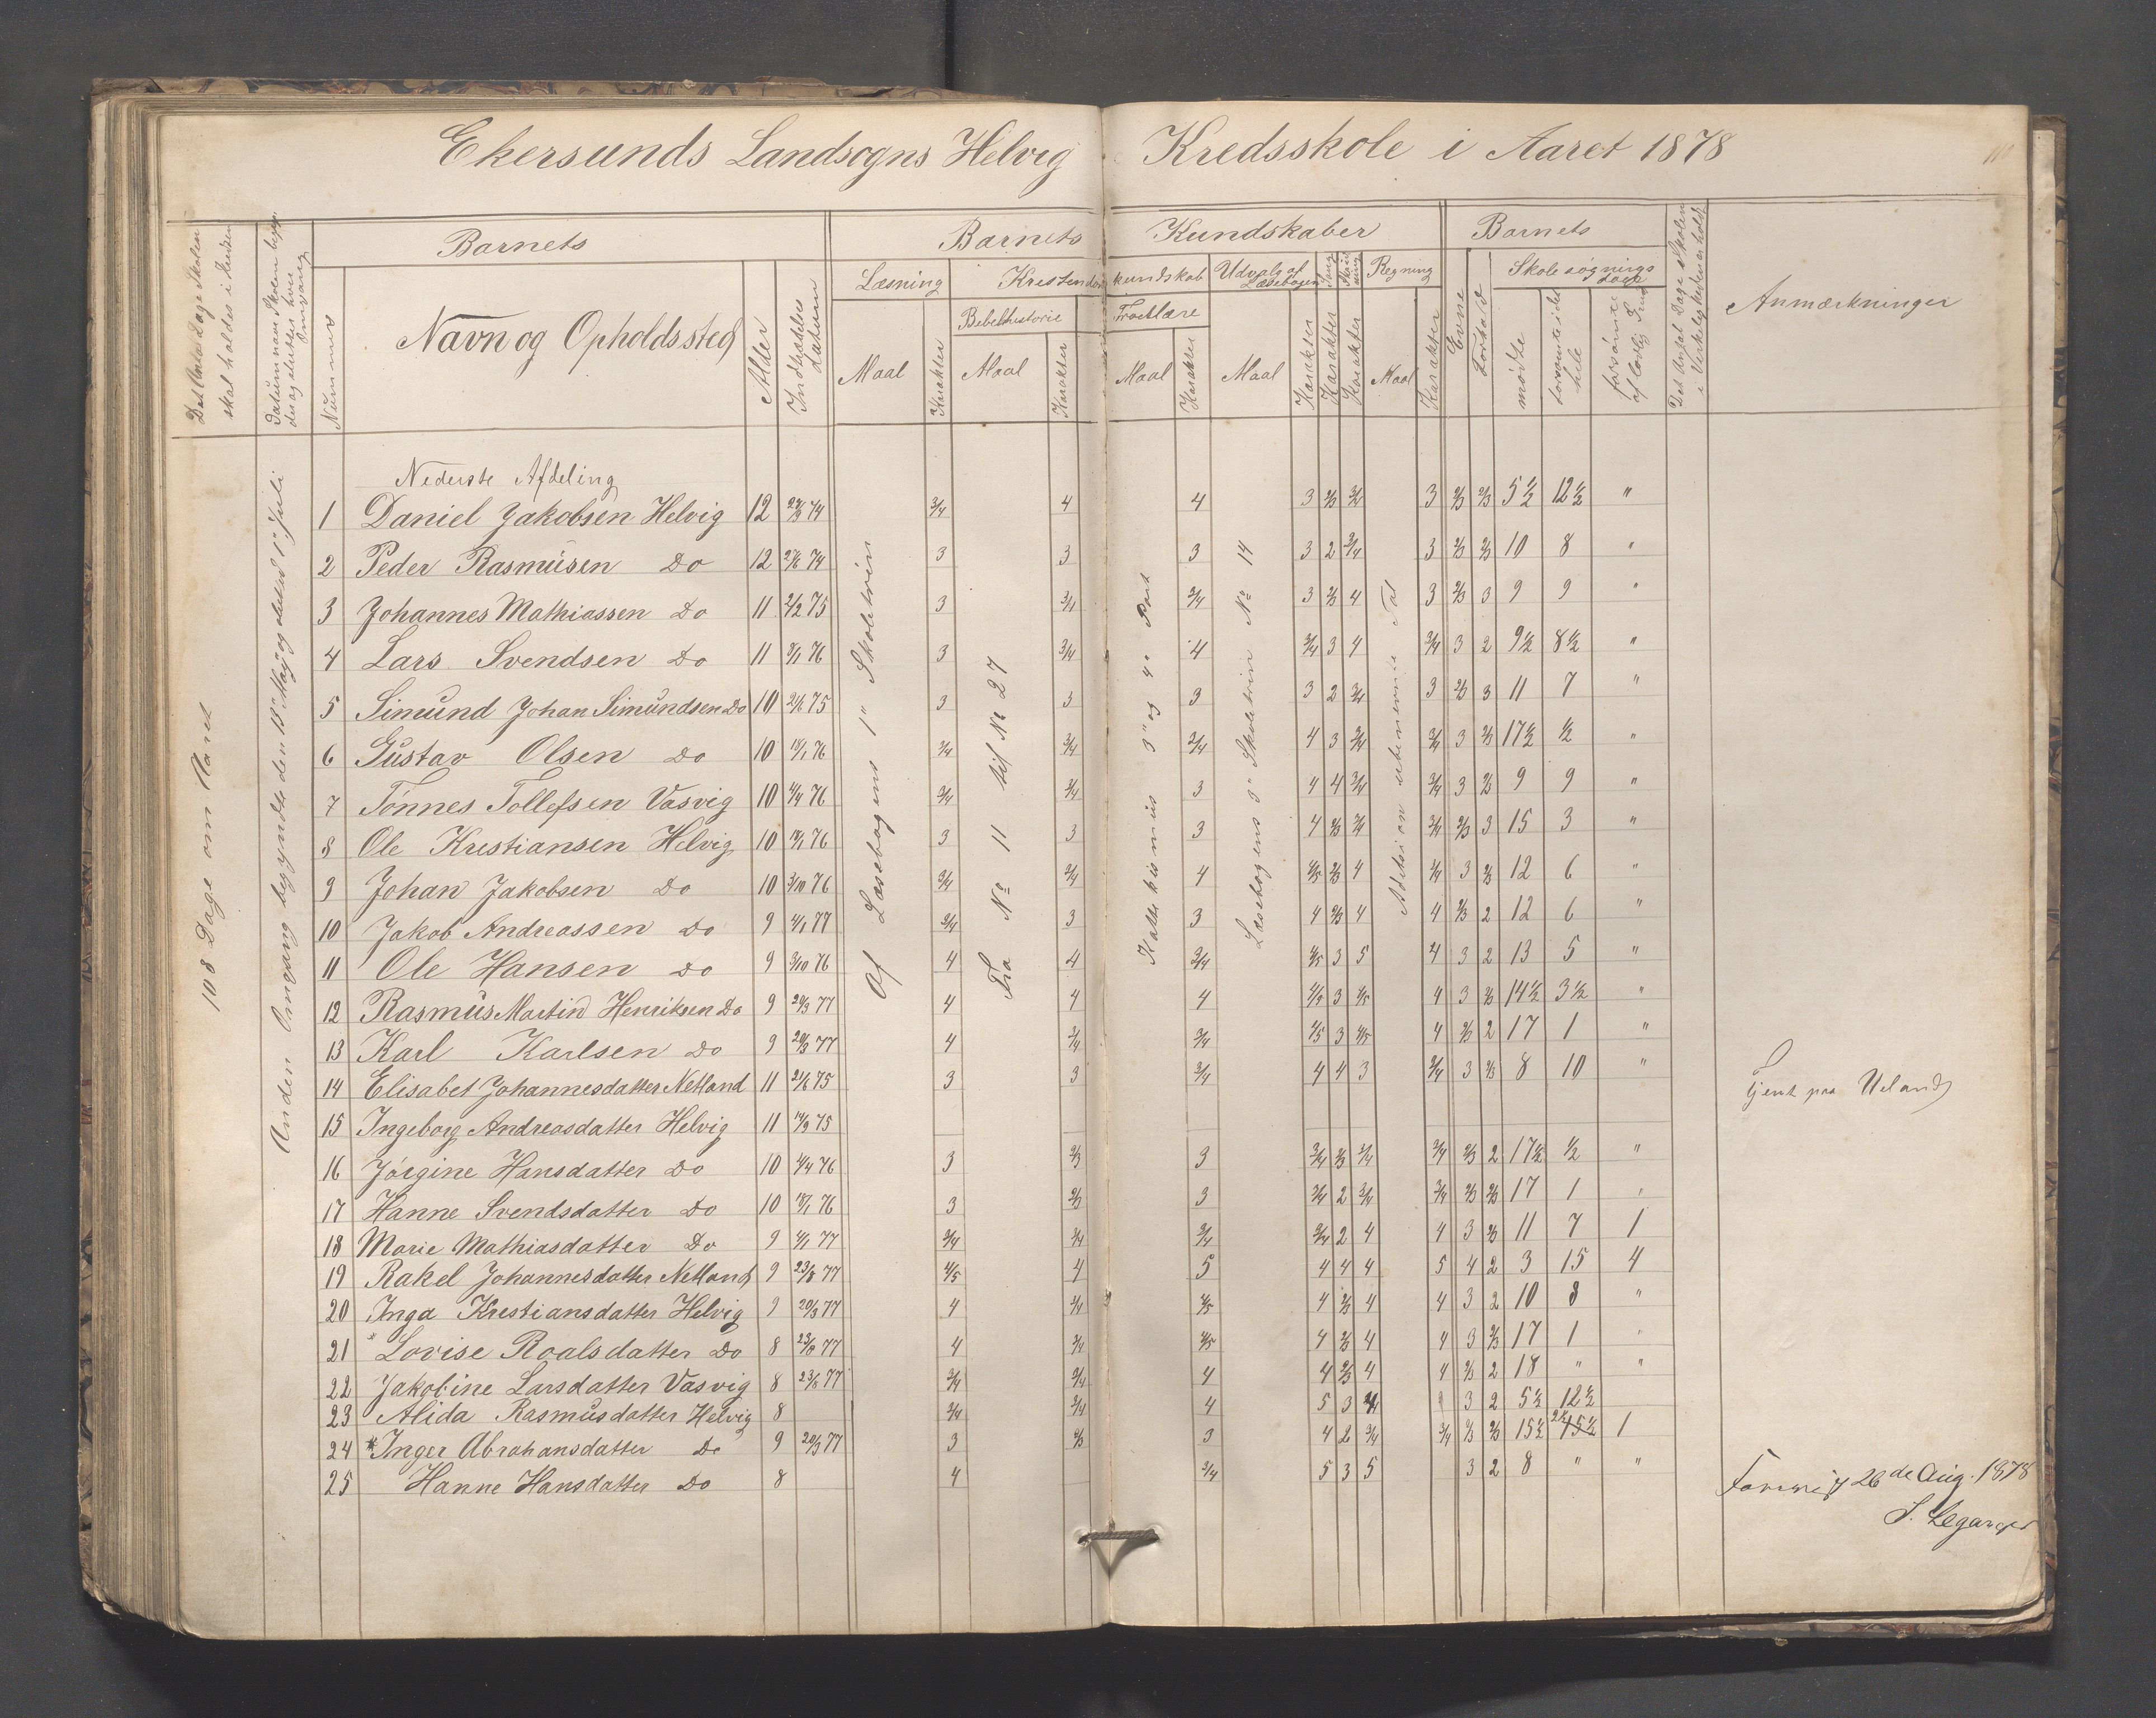 Ekersunds Landsogns Helvig Kredsskole i Aaret 1878
Det Antal Dage Skolen skal holdes i Kredsen
Datum naar Skolen begynder og slutter hver Omgang
Nummer
Barnets
Navn og Opholdssted
Alder
Indtrædelses Datum
Barnets Kundskaber
Læsning
Maal
Karakter
Kristendomskundskab
Bibelhistorie
Maal
Karakter
Troeslære
Maal
Karakter
Udvalg af Læsebogen
Maal
Karakter
Sang
Karakter
Skrivning
Karakter
Regning
Maal
Karakter
Barnets
Evne
Forhold
Skolesøgningsdage
mødte
forsømte i det hele
forsømte af lovlig Grund
Det Antal Dage Skolen i Virkeligheden er holdt
Anmærkninger
108 Dage om Aaret
Anden Omgang begyndte den 13de Maj og sluttet 1ste Juli
Af Læsebogens 1ste Skoletrin
Fra No 11 til No 27
Katekismus 3die og 4de Part
Læsebogens 3die Skoletrin No 14
Addision ubenevnte Tal
Nederste Afdeling
1 Daniel Jakobsen Helvig 12 74 3/4 4 4 3 2/3 3/4 3 2/3 2/3 5½ 12½ "
2 Peder Rasmusen Do 12 74 3 3 3 3 2 3/4 3 2/3 2/3 10 8 "
3 Johannes Mathiassen Do 11 75 3 3/4 3/4 3 2/3 4 3 2/3 3 9 9 "
4 Lars Svendsen Do 11 76 3 3/4 4 3/4 3 4 3/4 3 2 9½ 8½ "
5 Simund Johan Simundsen Do 10 75 3 3 3 3 2 3/4 3 2/3 3 11 7 "
6 Gustav Olsen Do 10 76 3/4 3/4 3/4 4 3 3/4 3/4 3 2/3 17½ ½ "
7 Tønnes Tollefsen Vasvig 10 76 3/4 3/4 3 4 4 3/4 3/4 3 2/3 9 9 "
8 Ole Kristiansen Helvig 10 76 3 3 3 4 2/3 3/4 3/4 2/3 3 15 3 "
9 Johan Jakobsen Do 10 3/10 76 3/4 3/4 4 4/5 2/3 4 3/4 3 2/3 12 6 "
10 Jakob Andreassen Do 9 77 3/4 3 3 4 2/3 4 4 2/3 2 12 6 "
11 Ole Hansen Do 9 3/10 76 4 4 3/4 4/5 3 5 4 3 2 13 5 "
12 Rasmus Martin Henriksen Do 9 20/3 77 4 4 4 4/5 3 4/5 4 3 2/3 14½ 3½ "
13 Karl Karlsen Do 9 20/3 77 4 3/4 3/4 4/5 3 4/5 4 2/3 2 17 1 "
14 Elisabet Johannesdatter Netland 11 75 3 3 3/4 4 4 3 3/4 3 2/3 8 10 "
15 Ingeborg Andreasdatter Helvig 11 75 Tjent paa Ueland
16 Jørgine Hansdatter Do 10 76 3 2/3 3 3/4 2/3 3/4 3/4 2/3 2 17½ ½ "
17 Hanne Svendsdatter Do 10 76 3 2/3 3 3/4 2 3/4 3/4 2/3 2/3 17 1 "
18 Marie Mathiasdatter Do 9 77 3/4 3/4 3/4 3/4 2 4 4 3 2/3 11 7 1
19 Rakel Johannesdatter Netland 9 23/8 77 4/5 4 5 4 4 4 5 4 2 3 15 4
20 Inga Kristiansdatter Helvig 9 20/3 77 4 3/4 4/5 4 2/3 4 4 3 2 10 8 "
21 * Lovise Roalsdatter Do 8 23/8 77 4 3/4 4/5 4 2/3 4 4 3 2/3 17 1 "
22 Jakobine Larsdatter Vasvig 8 23/8 77 3/4 3/4 4 4 2/3 4 4 2/3 2 18 " "
23 Alida Rasmusdatter Helvig 8 3/4 3/4 4 5 3 3 2 5½ 12½
24 * Inger Abrahansdatter Do 9 20/3 77 3 2/3 3 4 2 3/4 3/4 2/3 2/3 15½ 2½ 1
25 Hanne Hansdatter Do 8 4 3/4 5 3 5 3 2 8 " "
26de Aug. 1878